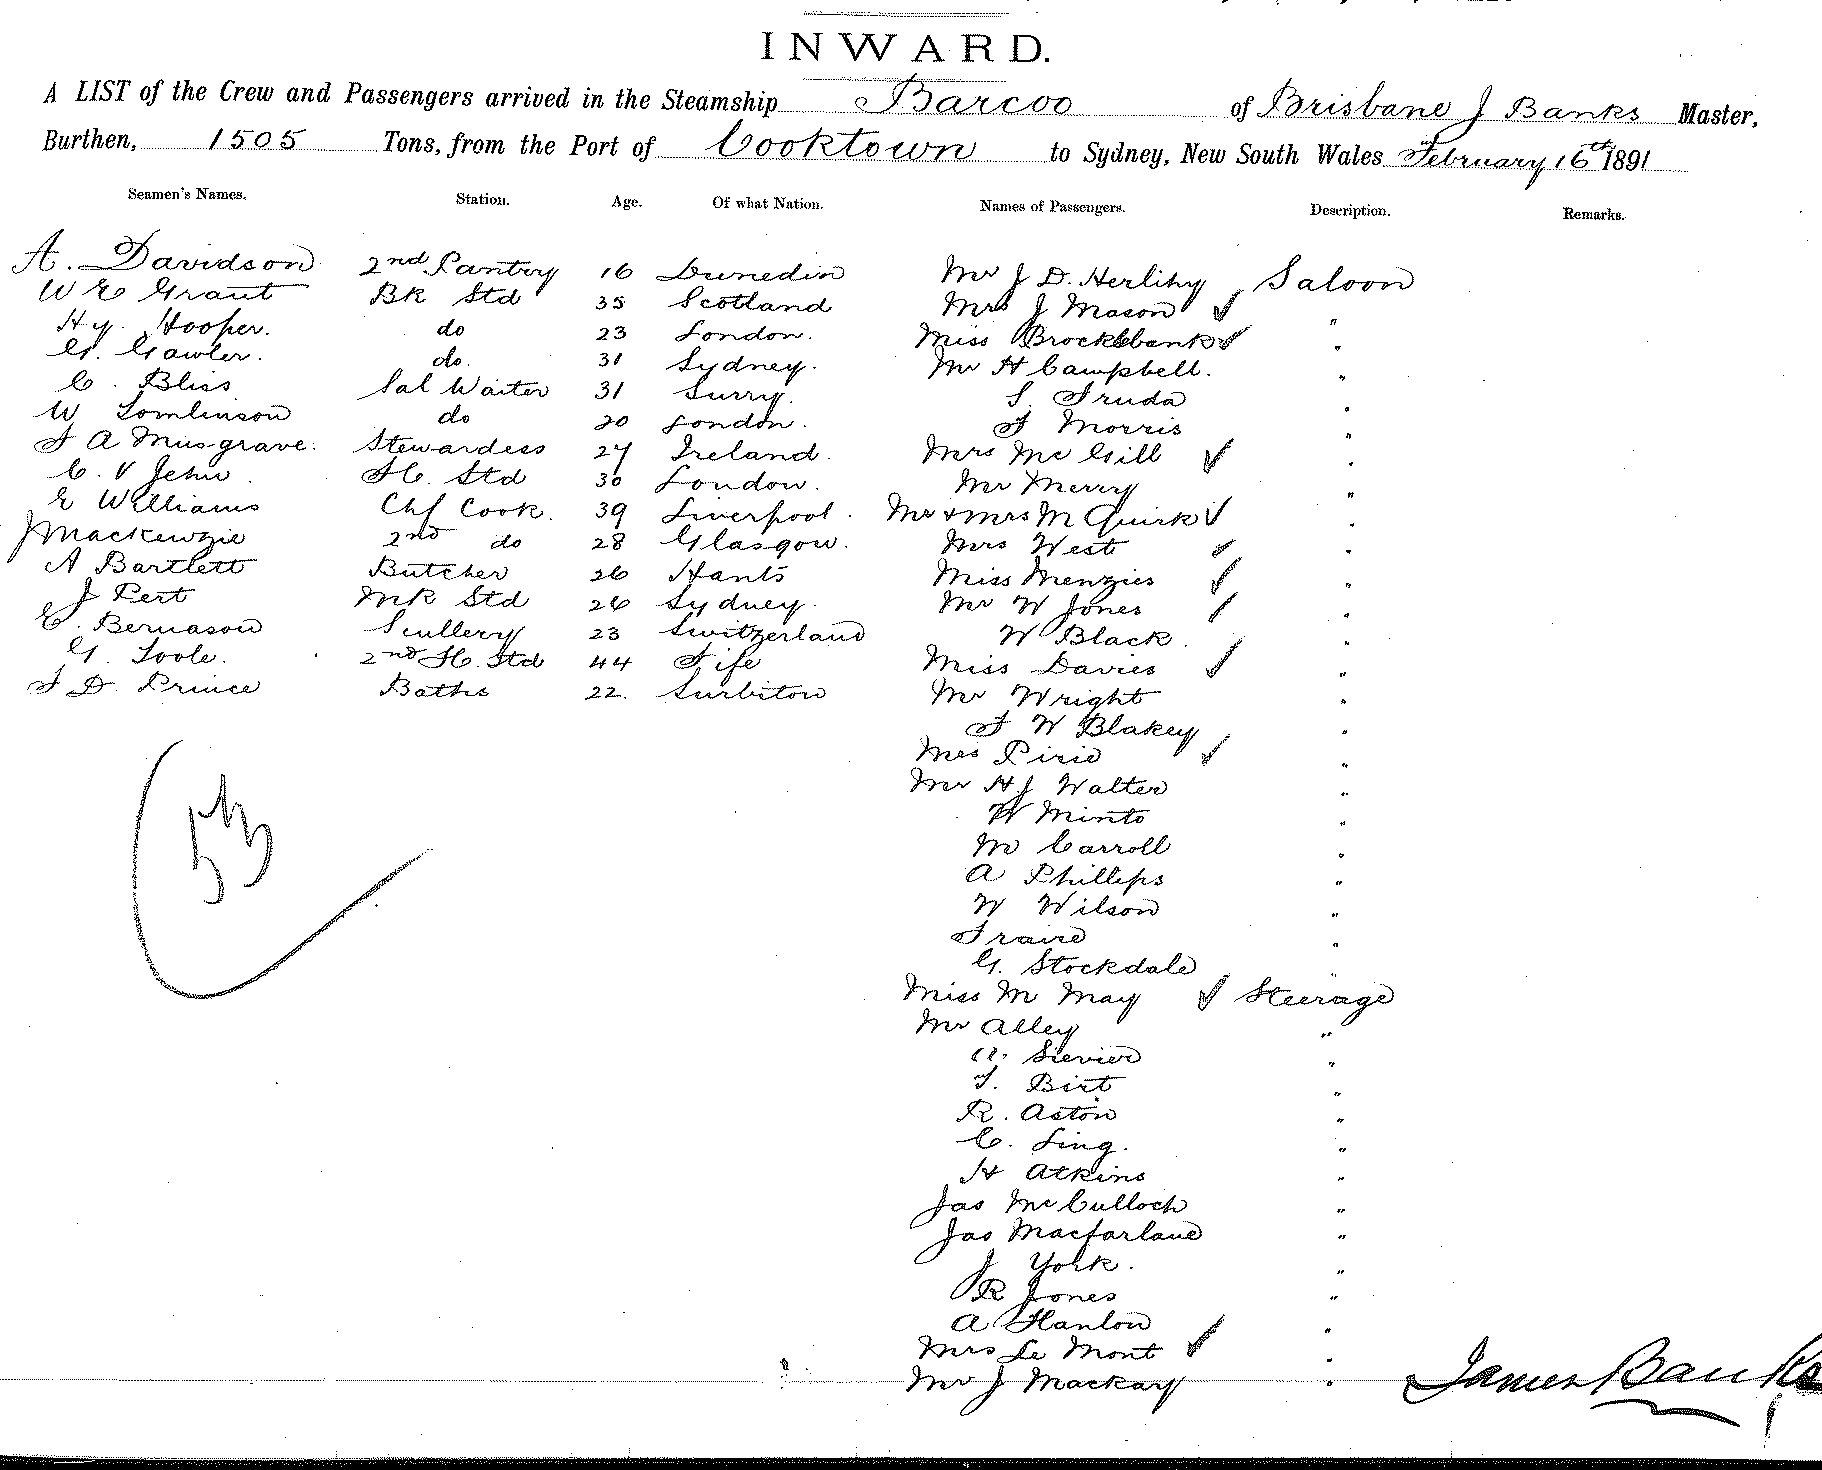 INWARD.
A LIST of the Crew and Passengers arrived in the Steamship Barcoo of Brisbane J Banks Master,
Burthen, 1505 Tons, from the Port of Cooktown to Sydney, New South Wales February 16th 1891
Seamen's Names. Station. Age. Of what Nation. Names of Passengers. Description. Remarks.
A. Davidson 2nd Pantry 16 Dunedin Mr J D. Herlihy Saloon
W E Grant BK Std 35 Scotland Mrs J Mason "
Hy. Hooper. do 23 London. Miss Brocksbank "
G. Gawler. do. 31 Sydney. Mr H Campbell. "
C. Bliss Sal Waiter 31 Surry. S. Truda "
W Tomlinson do 20 London. F Morris "
F A Musgrave. Stewardess 27 Ireland. Mrs Mc Gill "
C. V Jehu Fc. Std 30 London. Mr Merry "
E Williams Chf Cook. 39 Liverpool. Mr + Mrs M Quirk "
J Mackenzie 2nd do 28 Glasgow. Mrs West "
A Bartlett Butcher 26 Hants Miss Menzies "
J Pert MR Std 26 Sydney. Mr W Jones "
E. Bernason Scullery 23 Switzerland W Black. "
G. Toole. 2nd Fc. Std 44 Fife Miss Davies "
F D. Prince Baths 22. Surbiton Mr Wright "
F W Blakey "
Mrs Pirie "
Mr H J Walter "
W Minto "
M Carroll "
A Phillips "
W Wilson "
Fraire "
G. Stockdale "
Miss M May Steerage
Mr Alley "
Sievier "
T. Birt "
R. Aston "
C. Ling. "
H Atkins "
Jas McCulloch "
Jas Macfarlane "
J York. "
R Jones "
A Hanlon "
Mrs Le Mont "
Mr J Mackay "
James Banks
53